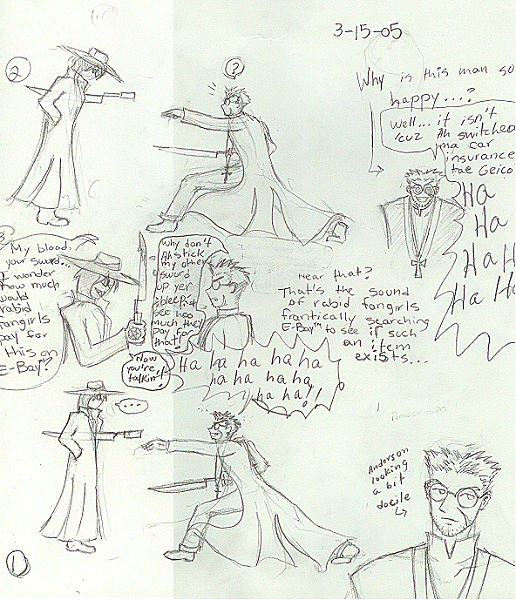 3-15-05
Why is this man so
happy...?
Well... it isn't
'cuz Ah switched
ma car
insurance
tae Geico
Ha
Ha
Ha H
Ha Ha
2
?
My blood,
your sword...
I wonder
how much
would
rabid
fangirls
pay for
this on
E-Bay?
Why don't
Ah stick
my other
sword
up yer
see hoo
much they
pay for
that!
Now
you're
talkin'!
Ha ha ha ha ha
ha ha ha ha
ha ha!!
Hear that?
That's the sound
of rabid fangirls
frantically searching
E-Bay™ to see
if such
an item
exists...
...
1
Anderson
Anderson
looking
a bit
docile